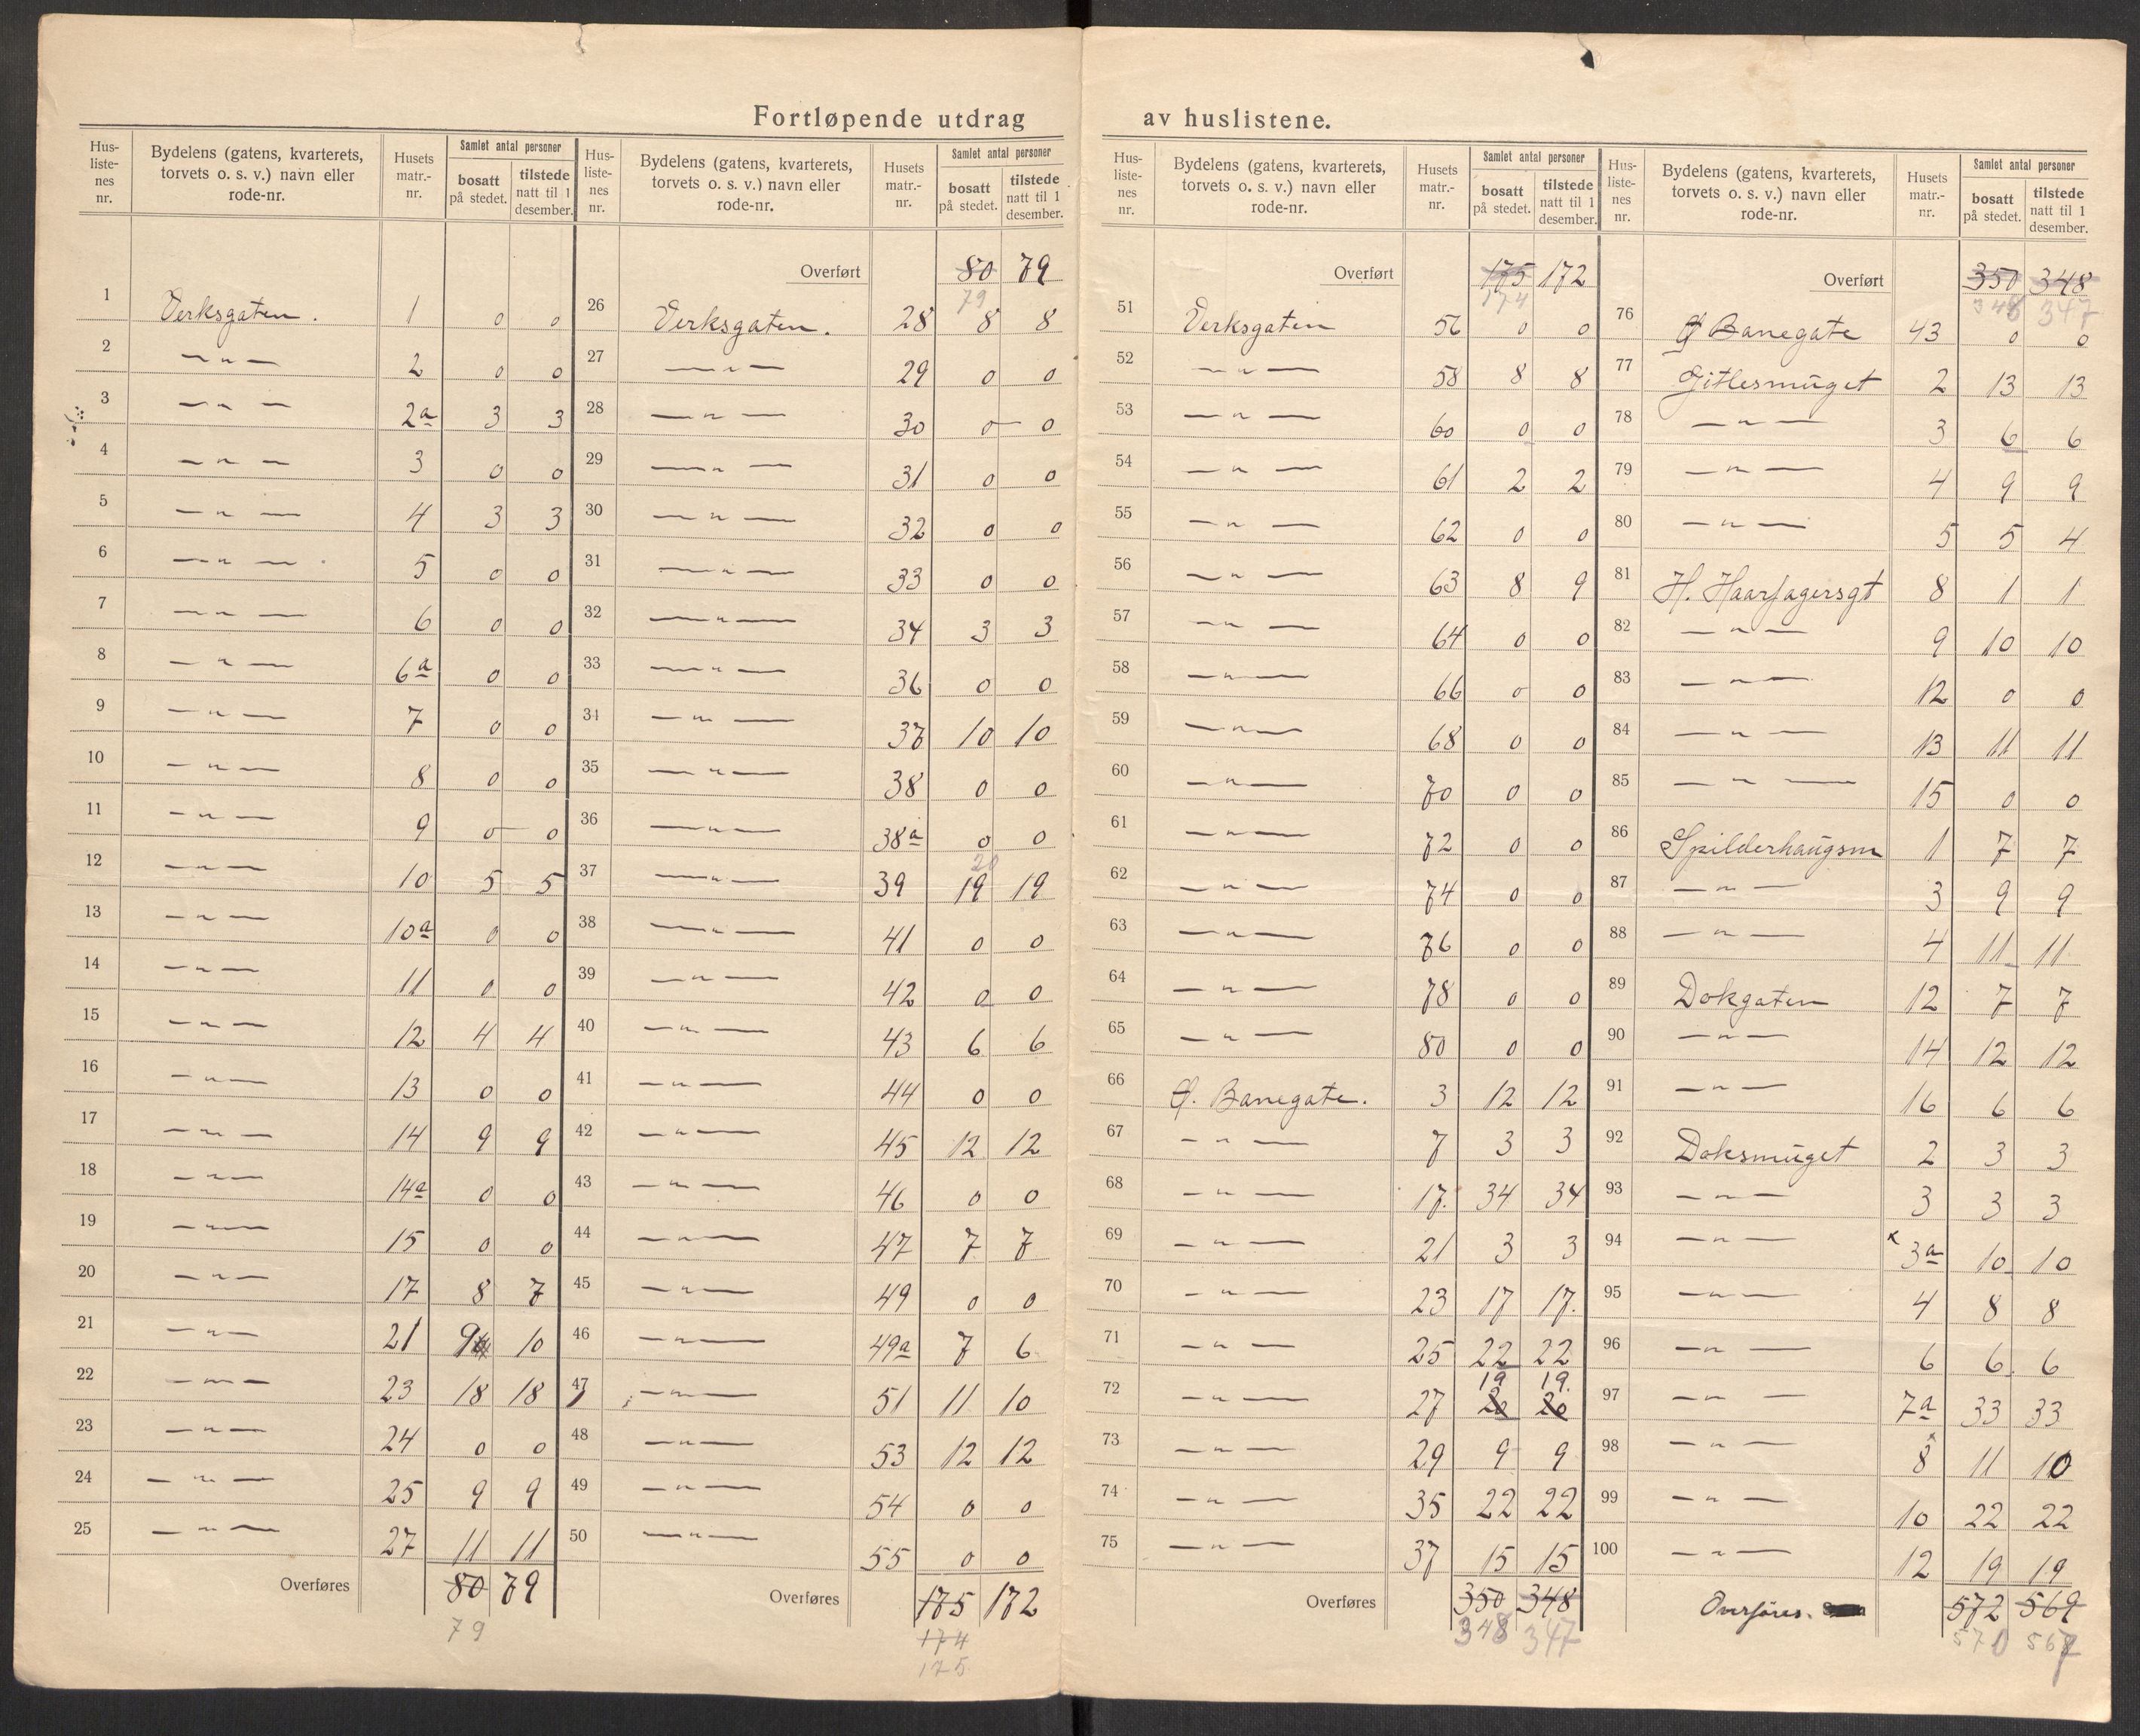 Fortløpende utdrag av huslistene.
Hus-listenes nr. | Bydelens (gatens, kvarterets, torvets o. s. v.) navn eller rode-nr. | Husets matr.-nr. | Samlet antal personer | bosatt på stedet. | tilstede natt til 1 desember.
1 Verksgaten. 1 0 0
2 — " — 2 0 0
3 — " — 2a 3 3
4 — " — 3 0 0
5 — " — 4 3 3
6 — " — 5 0 0
7 — " — 6 0 0
8 — " — 6a 0 0
9 — " — 7 0 0
10 — " — 8 0 0
11 — " — 9 0 0
12 — " — 10 5 5
13 — " — 10a 0 0
14 — " — 11 0 0
15 — " — 12 4 4
16 — " — 13 0 0
17 — " — 14 9 9
18 — " — 14a 0 0
19 — " — 15 0 0
20 — " — 17 8 7
21 — " — 21 9 10
22 — " — 23 18 18
23 — " — 24 0 0
24 — " — 25 9 9
25 — " — 27 11 11
Overføres 80 79
79
Hus-listenes nr. | Bydelens (gatens, kvarterets, torvets o. s. v.) navn eller rode-nr. | Husets matr.-nr. | Samlet antal personer | bosatt på stedet. | tilstede natt til 1 desember.
Overført 80 79
79
26 Verksgaten. 28 8 8
27 — " — 29 0 0
28 — " — 30 0 0
29 — " — 31 0 0
30 — " — 32 0 0
31 — " — 33 0 0
32 — " — 34 3 3
33 — " — 36 0 0
34 — " — 37 10 10
35 — " — 38 0 0
36 — " — 38a 0 0
20
37 — " — 39 19 19
38 — " — 41 0 0
39 — " — 42 0 0
40 — " — 43 6 6
41 — " — 44 0 0
42 — " — 45 12 12
43 — " — 46 0 0
44 — " — 47 7 7
45 — " — 49 0 0
46 — " — 49a 7 6
47 — " — 51 11 10
48 — " — 53 12 12
49 — " — 54 0 0
50 — " — 55 0 0
Overføres 175 172
174
175
Hus-listenes nr. | Bydelens (gatens, kvarterets, torvets o. s. v.) navn eller rode-nr. | Husets matr.-nr. | Samlet antal personer | bosatt på stedet. | tilstede natt til 1 desember.
Overført 175 172
174
51 Verksgaten 56 0 0
52 — " — 58 8 8
53 — " — 60 0 0
54 — " — 61 2 2
55 — " — 62 0 0
56 — " — 63 8 9
57 — " — 64 0 0
58 — " — 66 0 0
59 — " — 68 0 0
60 — " — 70 0 0
61 — " — 72 0 0
62 — " — 74 0 0
63 — " — 76 0 0
64 — " — 78 0 0
65 — " — 80 0 0
66 Ø. Banegate. 3 12 12
67 — " — 7 3 3
68 — " — 17. 34 34
69 — " — 21 3 3
70 — " — 23 17 17.
71 — " — 25 22 22
19 19.
72 — " — 27 20 20
73 — " — 29 9 9
74 — " — 35 22 22
75 — " — 37 15 15
Overføres 350 348
348 347
Hus-listenes nr. | Bydelens (gatens, kvarterets, torvets o. s. v.) navn eller rode-nr. | Husets matr.-nr. | Samlet antal personer | bosatt på stedet. | tilstede natt til 1 desember.
Overført 350 348
348 347
76 Ø Banegate 43 0 0
77 Gitlesmuget 2 13 13
78 — " — 3 6 6
79 — " — 4 9 9
80 — " — 5 5 4
81 H. Haarfagersgt 8 1 1
82 — " — 9 10 10
83 — " — 12 0 0
84 — " — 13 11 11
85 — " — 15 0 0
86 Spilderhaugsm 1 7 7
87 — " — 3 9 9
88 — " — 4 11 11
89 Dokgaten 12 7 7
90 — " — 14 12 12
91 — " — 16 6 6
92 Doksmuget 2 3 3
93 — " — 3 3 3
94 — " — x 3a 10 10
95 — " — 4 8 8
96 — " — 6 6 6
97 — " — 7a 33 33
98 — " — 8 11 10
99 — " — 10 22 22
100 — " — 12 19 19
Overføres. 572 569
570 567